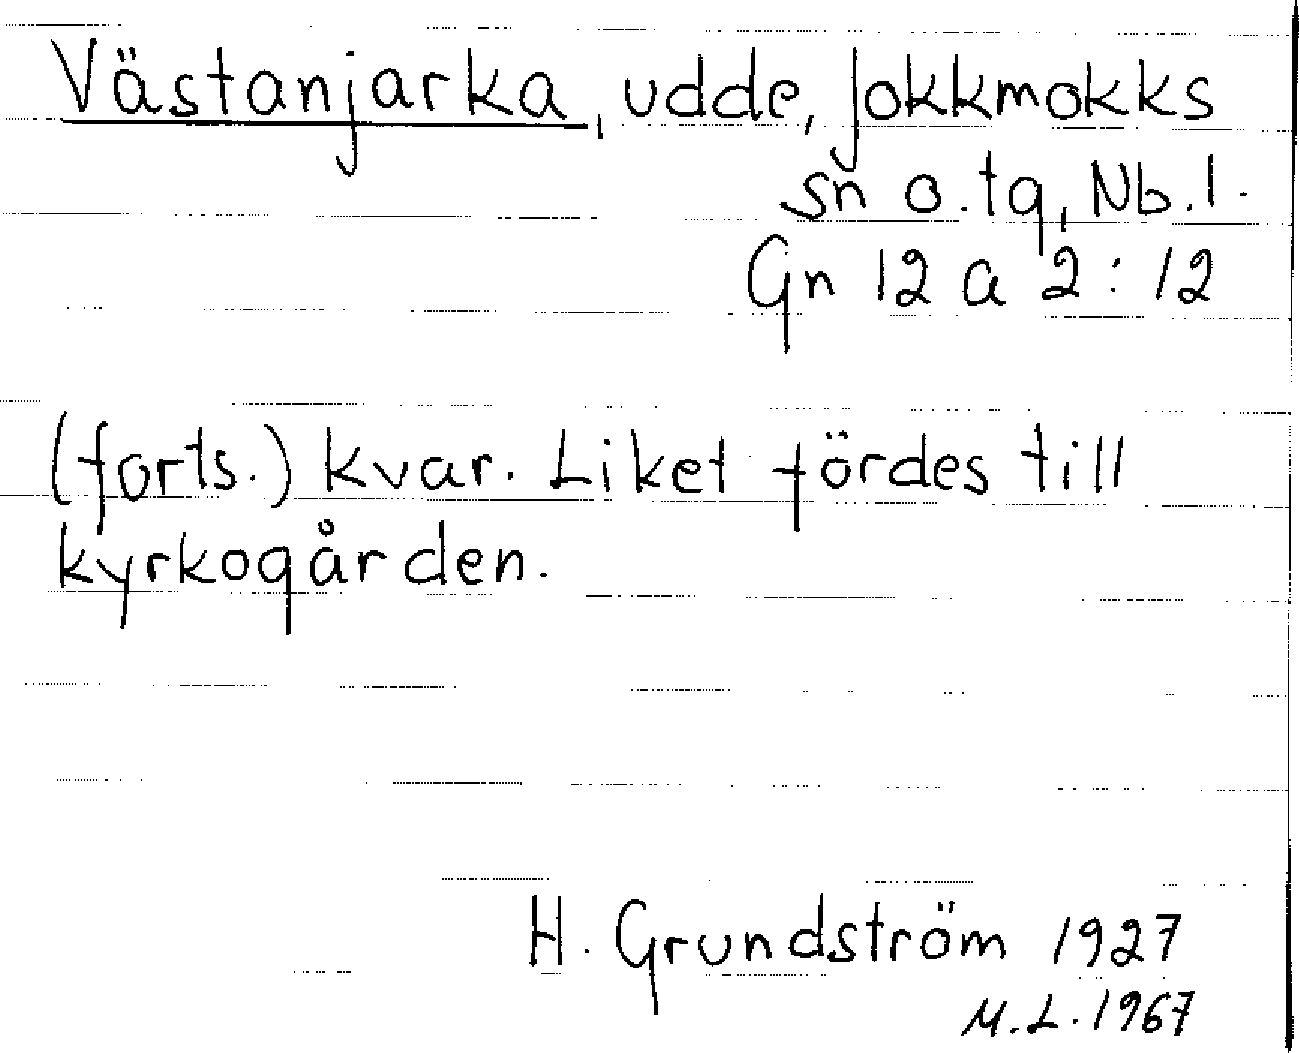 Västanjarka, udde, Jokkmokks
sn o. tg, Nb. l.
Gn 12 a 2 : 12
(forts.) kvar. Liket fördes till
kyrkogården.
H. Grundström 1927
M.L. 1967